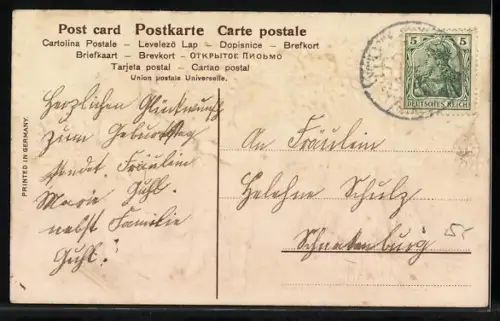 Post card Postkarte Carte postale
Cartolina Postale – Levelező Lap – Dopisnice – Brefkort
Briefkaart – Brevkort – ОТКРЫТОЕ ПИСЬМО
Tarjeta postal – Cartao postal
Union postale Universelle.
PRINTED IN GERMANY.
5 5
DEUTSCHES REICH
Herzlichen Glückwunsch
zum Geburtstag
sendet Fräulein
Marie Guhl.
nebst Familie
Guhl!
An Fräulein
Helehne Schulz
Schnakenburg
5.-